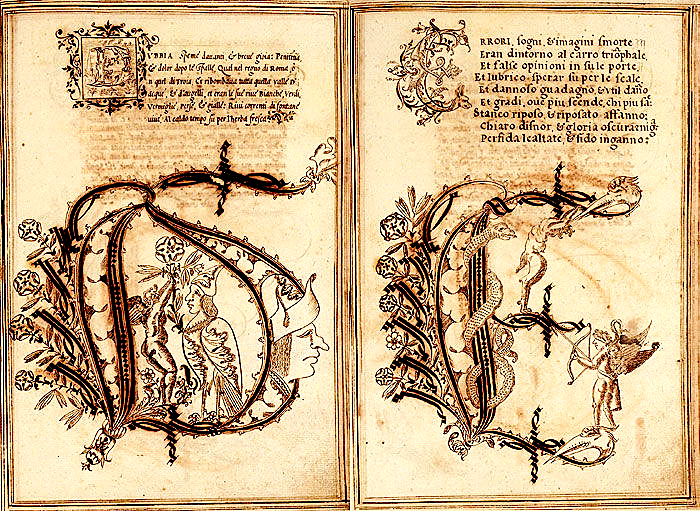 DVBBIA Speme dauanti, & breue gioia: Penitẽtia,
& dolor dopo le Spalle. Qual nel regno di Roma, o
in quel di Troia. Et ribombaua tutta quella valle D'
acque, & d'augelli, et eran le sue riue Bianche, Verdi,
Vermiglie, perse, & gialle: Riui correnti di fontane
viue, Al caldo tempo su per l'herba fresca
ERRORI, sogni, & imagini smorte
Eran dintorno al carro triõphale,
Et false opinioni in su le porte,
Et lubrico sperar su per le scale,
Et dannoso guadagno, & vtil dãno
Et gradi, oue piu scende, chi piu sa:
Stãco riposo, & riposato affanno:
Chiaro disnor, & gloria oscura & nig
Perfida lealtate, & fido inganno:
D
E